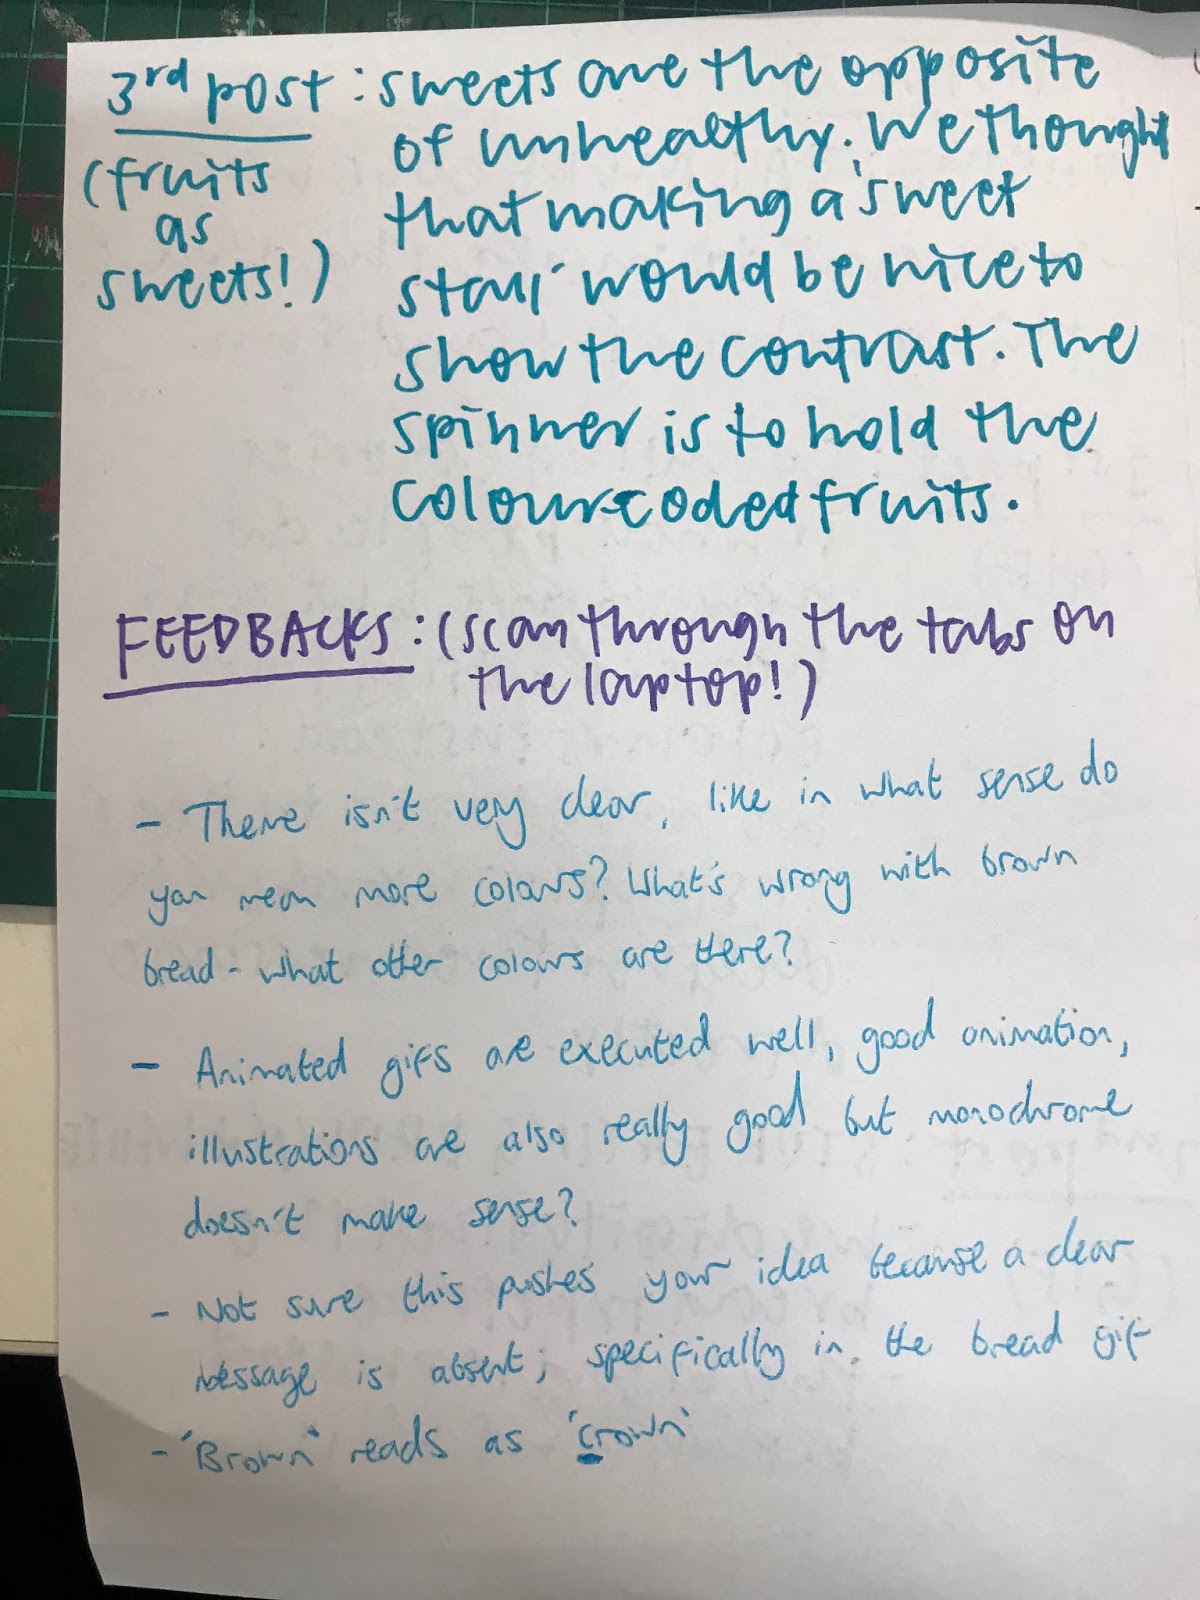 3rd post : sweets are the opposite
of unhealthy. We thought
(fruits
as
sweets!)
that making a 'sweet
stall' would be nice to
show the contrast. The
spinner is to hold the
colour-coded fruits.
FEEDBACKS : (scan through the tabs on
the laptop!)
- There isn't very clear, like in what sense do
you mean more colours? What's wrong with brown
bread - what other colours are there?
- Animated gifs are executed well, good animation,
illustrations are also really good but monochrome
doesn't make sense?
- Not sure this pushes your idea because a clear
message is absent; specifically in the bread gif
- 'Brown' reads as 'crown'